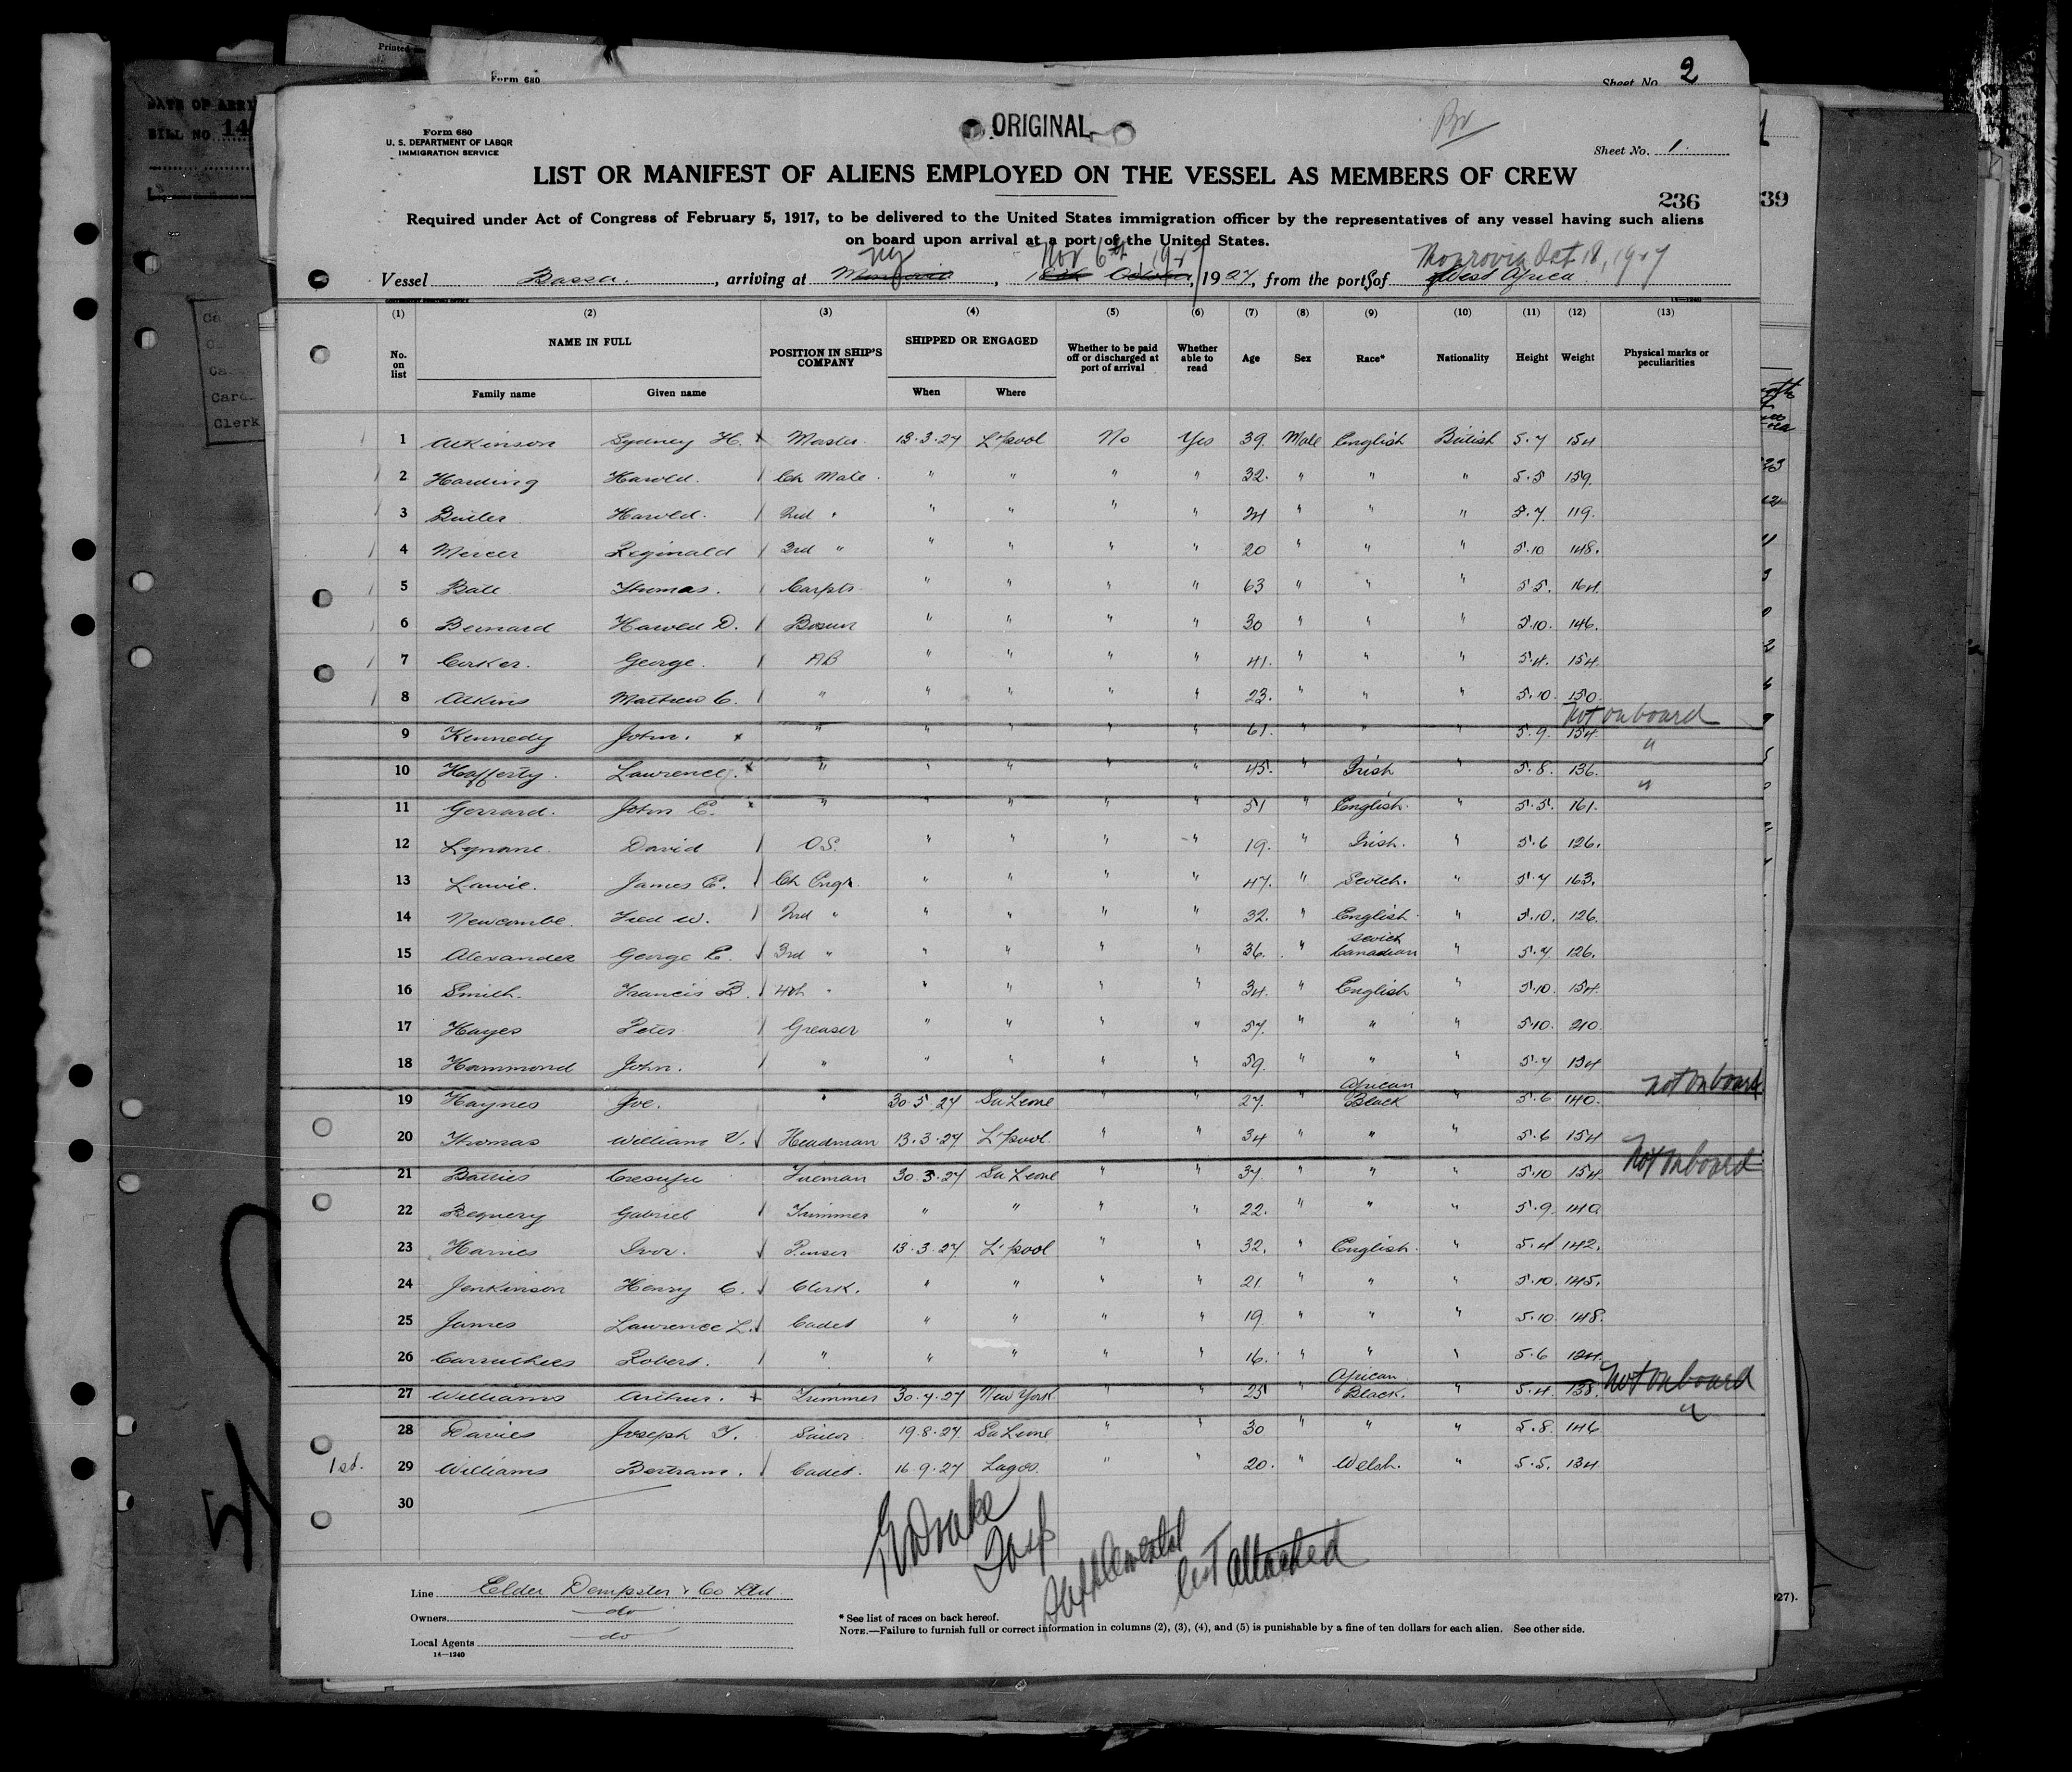 Printed
Form 680
Sheet No. 2
DATE OF ARRI
BILL NO. 14
ORIGINAL
Form 680
U. S. DEPARTMENT OF LABOR
IMMIGRATION SERVICE
Sheet No. 1
LIST OR MANIFEST OF ALIENS EMPLOYED ON THE VESSEL AS MEMBERS OF CREW
236
39
Required under Act of Congress of February 5, 1917, to be delivered to the United States immigration officer by the representatives of any vessel having such aliens
on board upon arrival at a port of the United States.
NY Nov 6th, 1927 Monrovia Oct 18, 1927
Vessel Bassa, arriving at Monrovia, 18th October, 1927, from the ports of West Africa
(1) (2) (3) (4) (5) (6) (7) (8) (9) (10) (11) (12) (13)
No. on list NAME IN FULL POSITION IN SHIP'S COMPANY SHIPPED OR ENGAGED Whether to be paid off or discharged at port of arrival Whether able to read Age Sex Race* Nationality Height Weight Physical marks or peculiarities
Family name Given name When Where
1 Atkinson Sydney H. x Master 13.3.27 L'pool No Yes 39 Male English British 5.7 154
2 Harding Harold. Ch Mate " " " " 32. " " " 5.5 159
3 Butler Harold. 2nd " " " " " 24 " " " 5.7. 119.
4 Mercer Reginald 3rd " " " " " 20 " " " 5.10 148.
5 Bate Thomas. Carptr. " " " " 63 " " " 5.5. 164.
6 Bernard Harold D. Bosun " " " " 30 " " " 5.10. 146.
7 Corker. George. AB " " " " 41. " " " 5.4. 154
8 Atkins Mathew C. " " " " " 23. " " " 5.10. 150.
9 Kennedy John. x " " " " " 61. " " " 5.9. 154. not on board
10 Hafferty. Lawrence. x " " " " " 45. " Irish " 5.8. 136. "
11 Gerrard. John E. x " " " " " 51 " English. " 5.5. 161. "
12 Lynane. David O.S. " " " " 19. " Irish. " 5.6 126.
13 Lawie. James E. Ch Engr. " " " " 47. " Scotch. " 5.7 163.
14 Newcombe. Fred W. 2nd " " " " " 32. " English. " 5.10. 126.
15 Alexander George E. 3rd " " " " " 36. " Scotch Canadian " 5.7. 126.
16 Smith. Francis B. 4th " " " " " 34. " English " 5.10. 154.
17 Hayes Peter Greaser " " " " 57. " " " 5.10. 210.
18 Hammond John. " " " " " 59. " " " 5.7 134
19 Haynes Joe. " 30.5.27 Sa Leone " " 27. " African Black " 5.6 140. not on board
20 Thomas William V. Headman 13.3.27 L'pool " " 34 " " " 5.6 154
21 Fireman 30.3.27 Sa Leone " " 37. " " " 5.10 154. not on board
22 Gabriel Trimmer " " " " 22. " " " 5.9. 140.
23 Harries Ivor. Purser 13.3.27 L'pool " " 32. " English. " 5.4 142.
24 Jenkinson Henry C. Clerk. " " " " 21 " " " 5.10. 145.
25 James Lawrence L. Cadet " " " " 19. " " " 5.10. 148.
26 Carruthers Robert. " " " " " 16. " " " 5.6 124.
27 Williams Arthur. x Trimmer 30.4.27 New York " " 25 " African Black. " 5.4. 138. not on board
28 Davies Joseph T. Sailor 19.8.27 Sa Leone " " 30 " " " 5.8. 146 "
1st. 29 Williams Bertram. Cadet. 16.9.27 Lagos. " " 20. " Welsh. " 5.5. 134
30
Drake
Insp
Supplemental
list attached
Line Elder Dempster & Co Ltd.
Owners do
Local Agents do
14—1240
* See list of races on back hereof.
NOTE.—Failure to furnish full or correct information in columns (2), (3), (4), and (5) is punishable by a fine of ten dollars for each alien. See other side.
Clerk